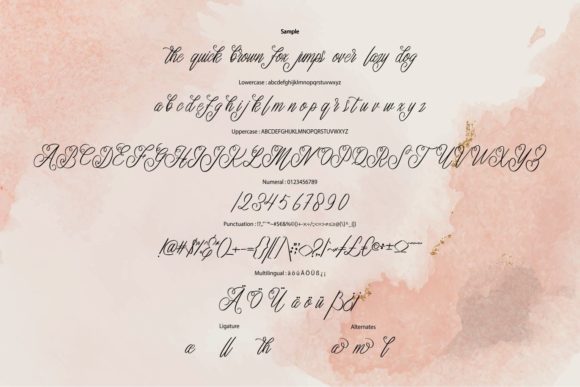 Sample
the quick brown fox jumps over lazy dog
Lowercase : abcdefghijklmnopqrstuvwxyz
a b c d e f g h i j k l m n o p q r s t u v w x y z
Uppercase : ABCDEFGHIJKLMNOPQRSTUVWXYZ
A B C D E F G H I J K L M N O P Q R S T U V W X Y Z
Numeral : 0123456789
1 2 3 4 5 6 7 8 9 0
Multilingual : ä ö ü Ä Ö Ü ß ¿ ¡
Ä Ö Ü ä ö ü ß ¿ ¡
Ligature
Alternates
ll th